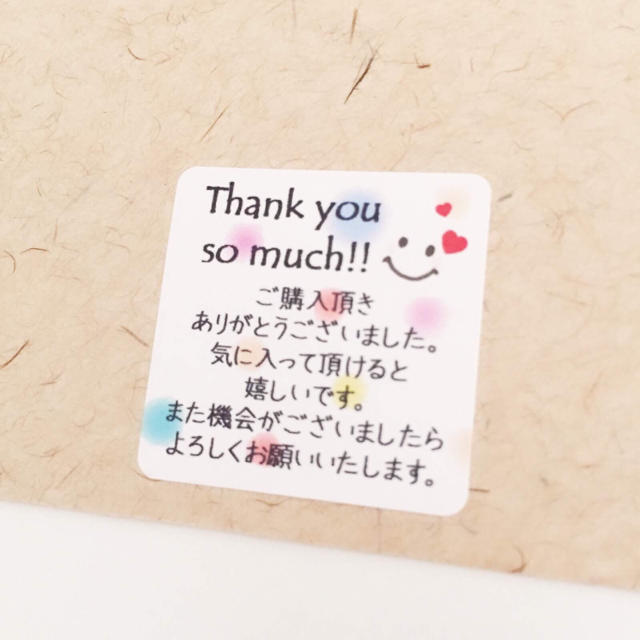 Thank you
so much!!
ご購入頂き
ありがとうございました。
気に入って頂けると
嬉しいです。
また機会がございましたら
よろしくお願いいたします。